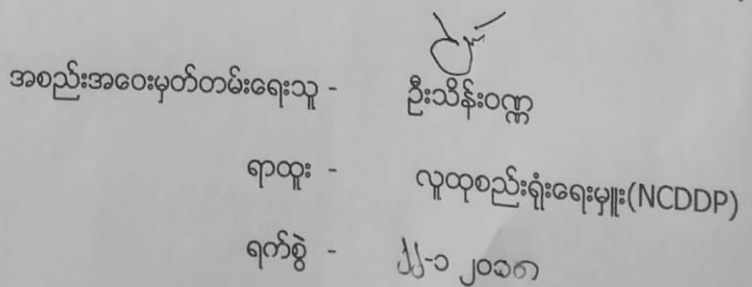 အစည်းအဝေးမှတ်တမ်းရေးသူ - ဦးသိန်းဝဏ္ဏ
ရာထူး - လူထုစည်းရုံးရေးမှူး(NCDDP)
ရက်စွဲ - ၂၂-၁